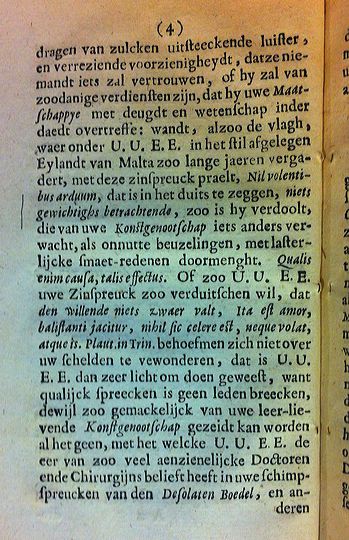 (4)
dragen van zulcken uitſteeckende luiſter,
en verreziende voorzienigheydt, datze nie-
mandt iets zal vertrouwen, of hy zal van
zoodanige verdienſten zijn, dat hy uwe Maat-
ſchappye met deugdt en wetenſchap inder
daedt overtreffe: wandt, alzoo de vlagh,
waer onder U. U. E E. in het ſtil afgelegen
Eylandt van Malta zoo lange jaeren verga-
dert, met deze zinſpreuck praelt, Nil volenti-
bus arduum, dat is in het duits te zeggen, niets
gewichtighs betrachtende, zoo is hy verdoolt,
die van uwe Konſtgenootſchap iets anders ver-
wacht, als onnutte beuzelingen, met laſter-
lijcke ſmaet-redenen doormenght. Qualis
enim cauſa, talis effectus. Of zoo U. U. E E.
uwe Zinſpreuck zoo verduitſchen wil, dat
den willende niets zwaer valt, Ita eſt amor,
baliſtanti jacitur, nihil ſic celere eſt, neque volat,
atque is. Plaut. in Trin. behoefmen zich niet over
uw ſchelden te vewonderen, dat is U. U.
E. E. dan zeer licht om doen geweeſt, want
qualijck ſpreecken is geen leden breecken,
dewijl zoo gemackelijck van uwe leer-lie-
vende Konſtgenootſchap gezeidt kan worden
al het geen, met het welcke U. U. E E. de
eer van zoo veel aenzienelijcke Doctoren
ende Chirurgijns belieft heeft in uwe ſchimp-
ſpreucken van den Deſolaten Boedel, en an-
deren